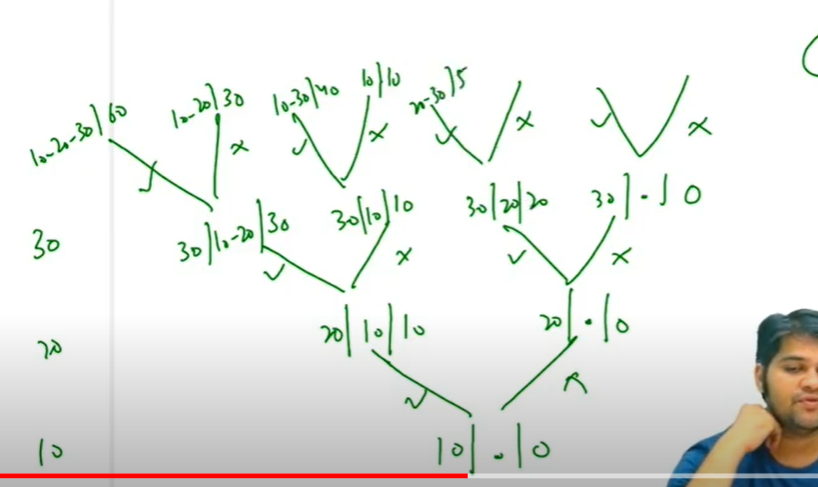 10-20-30|60 10-20|30 10-30|40 10|10 20-30|5
✓ x ✓ x ✓ x ✓ x
30 30|10-20|30 30|10|10 30|20|20 30|.|0
✓ x ✓ x
20 20|10|10 20|.|0
✓
10 10|.|0